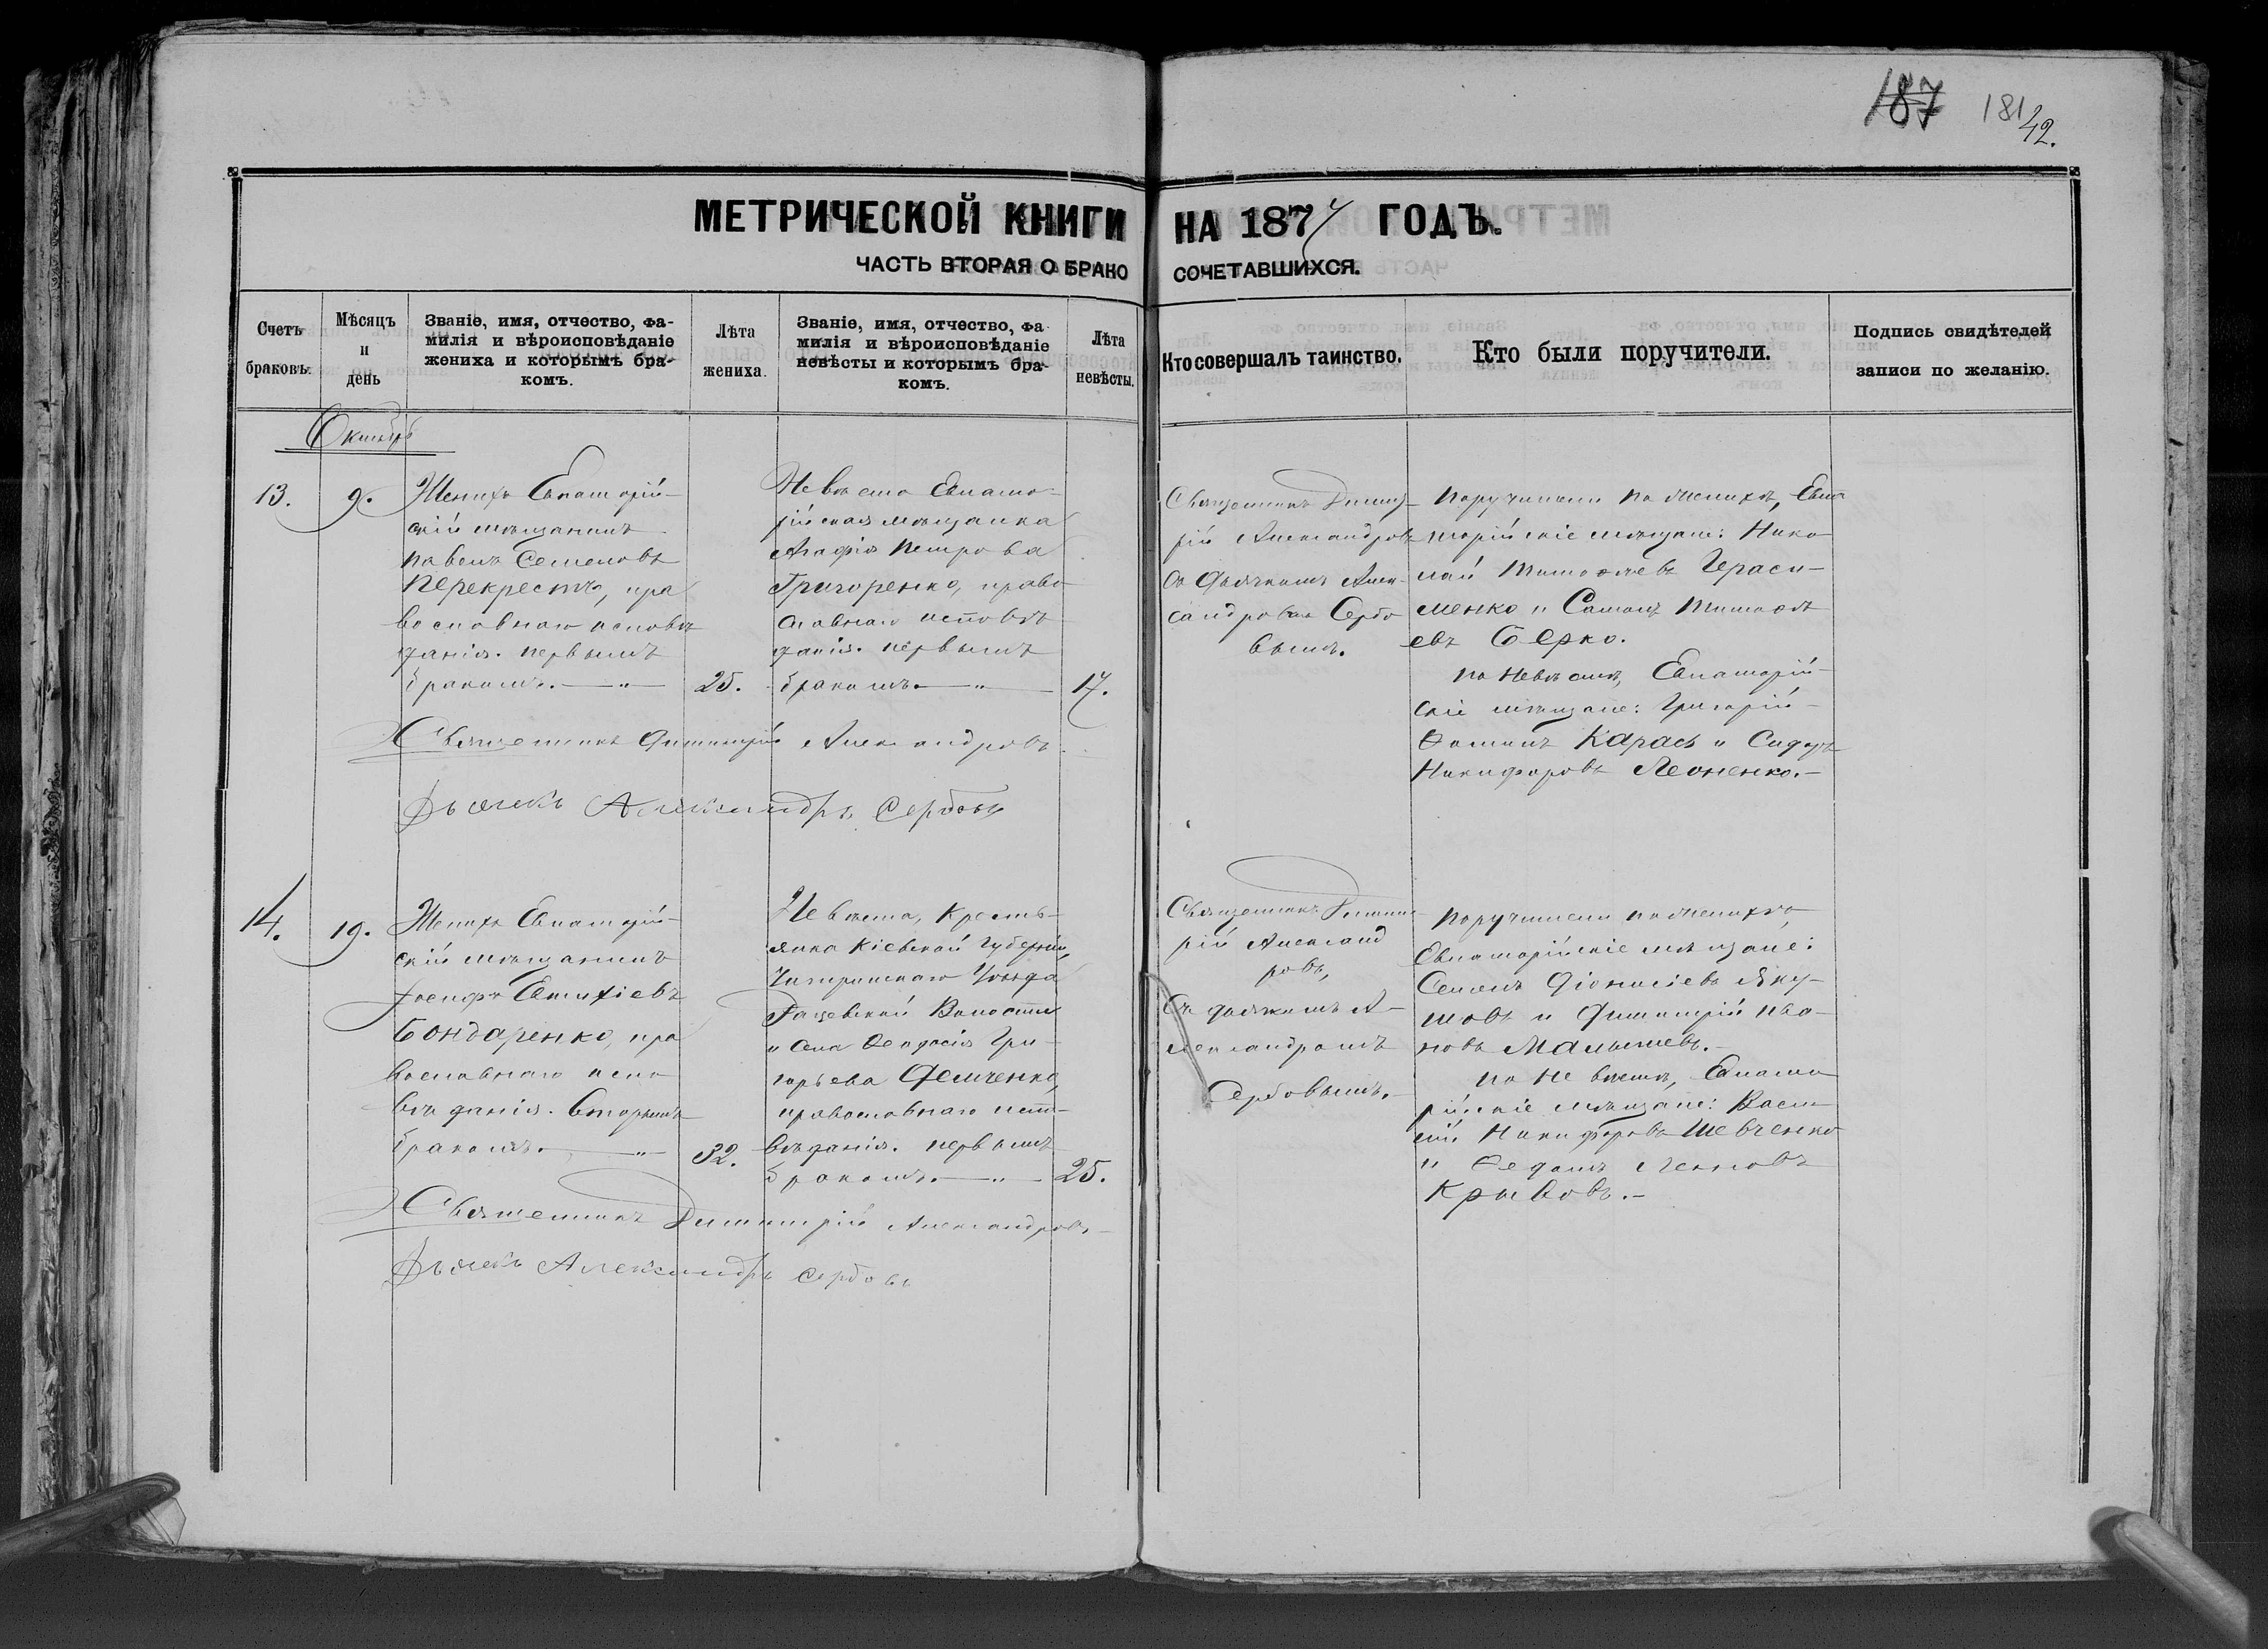 187 181 42.
МЕТРИЧЕСКОЙ КНИГИ НА 1877 ГОДЪ.
ЧАСТЬ ВТОРАЯ О БРАКО СОЧЕТАВШИХСЯ.
Счетъ браковъ.
Мѣсяцъ и день
Званіе, имя, отчество, фа-
милія и вѣроисповѣданіе
жениха и которымъ бра-
комъ.
Лѣта жениха.
Званіе, имя, отчество, фа
милія и вѣроисповѣданіе
невѣсты и которымъ бра-
комъ.
Лѣта невѣсты.
Кто совершалъ таинство.
Кто были поручители.
Подпись свидѣтелей
записи по желанію.
Октябрь
13.
9.
Женихъ Евпаторій-
скій мѣщанинъ
Павелъ Семеновъ
Перекрестъ, пра
вославнаго исповѣ
данія. первымъ
бракомъ. — „ —
25.
Невѣста Евпато-
рійская мѣщанка
Агафія Петрова
Григоренко, право
славнаго исповѣ
данія. первымъ
бракомъ. — „ —
17.
Священникъ Димит-
рій Александровъ
съ дьячкомъ Алек-
сандромъ Сербо
вымъ.
Поручители по женихѣ, Евпа
торійскіе мѣщане: Нико
лай Тимофеевъ Гераси-
менко и Самоилъ Тимофѣ
евъ Берко.
по невѣстѣ, Евпаторій-
скіе мѣщане: Григорій
Фоминъ Карась и Сидоръ
Никифоровъ Леоненко. —
Священникъ Димитрій Александровъ.
Дьячекъ Александръ Сербовъ
14.
19.
Женихъ Евпаторій-
скій мѣщанинъ
Іосифъ Евтихіевъ
Бондаренко, пра
вославнаго испо
вѣданія. Вторымъ
бракомъ. — „ —
32.
Невѣста, Кресть-
янка Кіевской Губерніи,
Чигиринскаго Уѣзда
Рацевской Волости
и села Феодосія Гри-
горьева Демченко,
православнаго испо-
вѣданія. первымъ
бракомъ. — „ —
25.
Священникъ Димит-
рій Александ
ровъ,
Съ дьячкомъ А-
лександромъ
Сербовымъ.
Поручители по женихѣ
Евпаторійскіе мѣщане:
Семенъ Діонисіевъ Яку-
шовъ и Димитрій Ива-
новъ Малышевъ. —
по невѣстѣ, Евпато
рійскіе мѣщане: Васи-
лій Никифоровъ Шевченко
и
Крывовъ. —
Священникъ Димитрій Александровъ
Дьячекъ Александръ Сербовъ